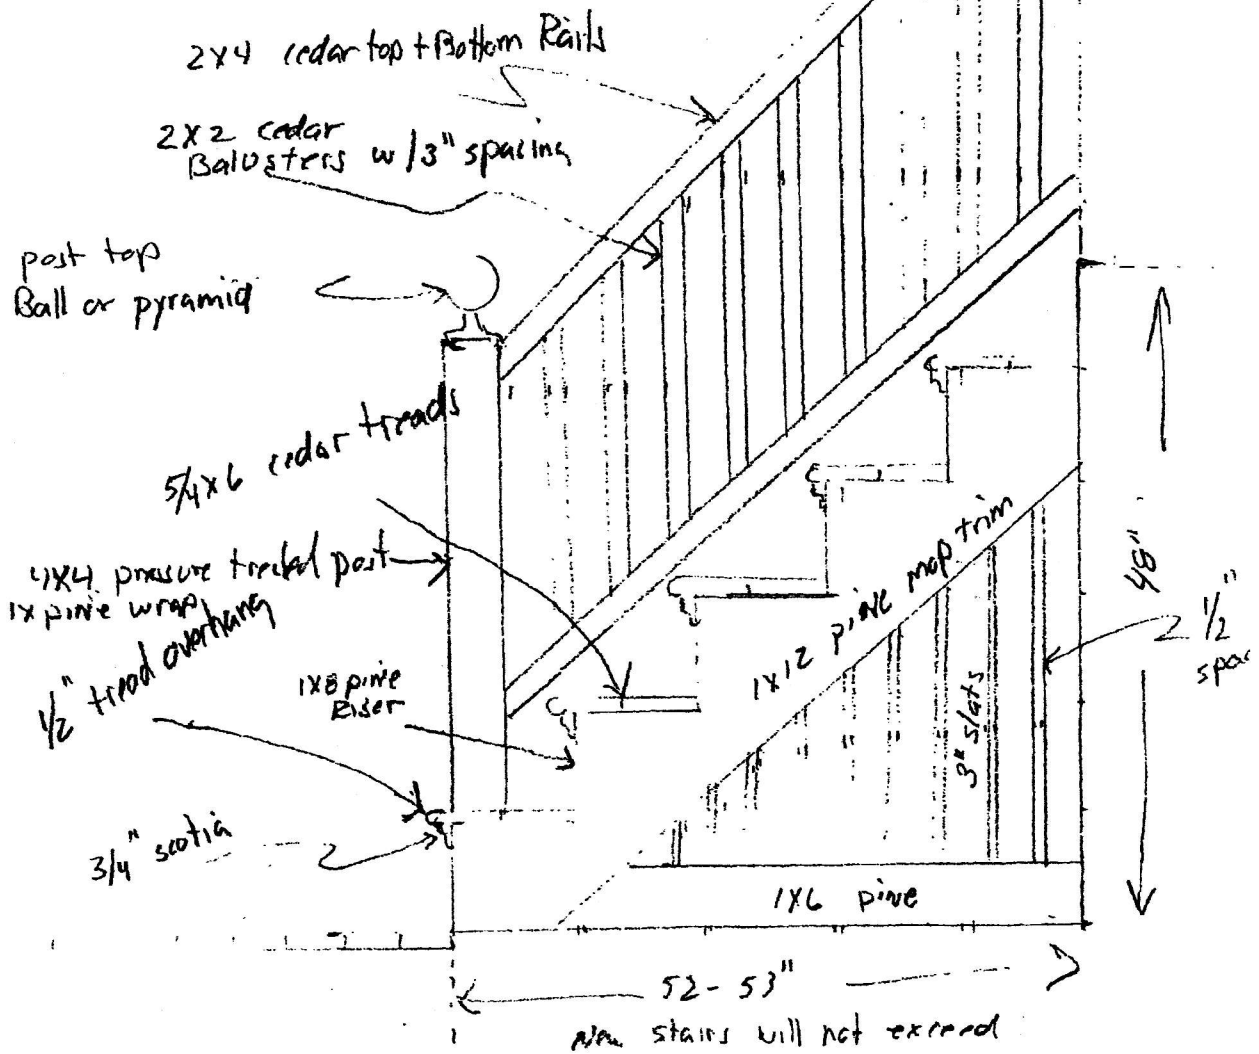 2x4 cedar top + Bottom Rails
2x2 cedar
Balusters w/3" spacing
post top
Ball or pyramid
5/4x6 cedar treads
4x4 pressure treated post
1x pine wrap
1/2" tread overhang
1x8 pine
Riser
3/4" scotia
1x12 pine mop trim
3" slats
48"
2 1/2"
spac
1x6 pine
52-53"
New stairs will not exceed